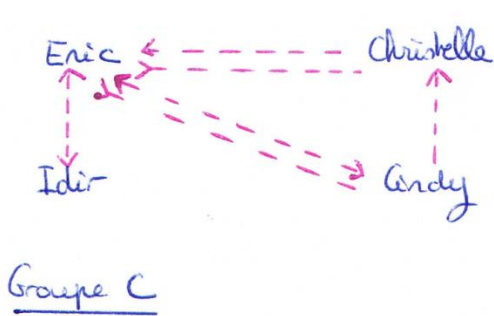 Eric Christelle
Idir Cindy
Groupe C